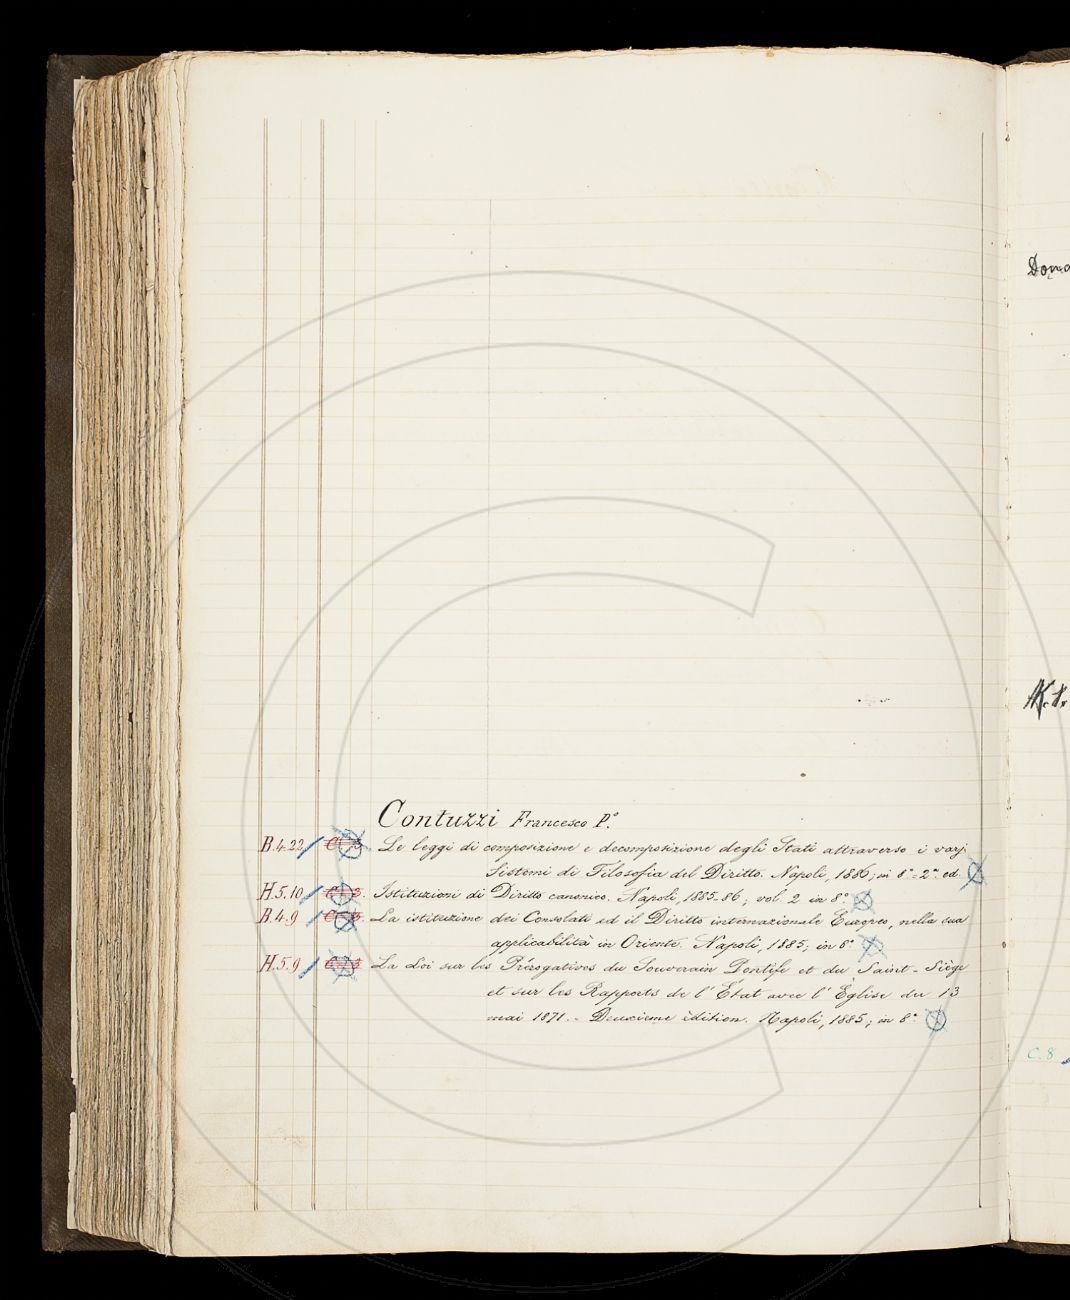 Contuzzi Francesco P.º
B.4.22 Le leggi di composizione e decomposizione degli Stati attraverso i varj
Sistemi di Filosofia del Diritto. Napoli, 1886; in 8º- 2ª ed
H.5.10 Istituzioni di Diritto canonico. Napoli, 1885-86; vol. 2 in 8º
B.4.9 La istituzione dei Consolati ed il Diritto internazionale Europeo, nella sua
applicabilità in Oriente. Napoli, 1885; in 8º
H.5.9 La Loi sur les Prérogatives du Souverain Pontife et du Saint-Siège
et sur les Rapports de l'État avec l'Église du 13
mai 1871. - Deuxieme édition. Napoli, 1885; in 8º
C.8